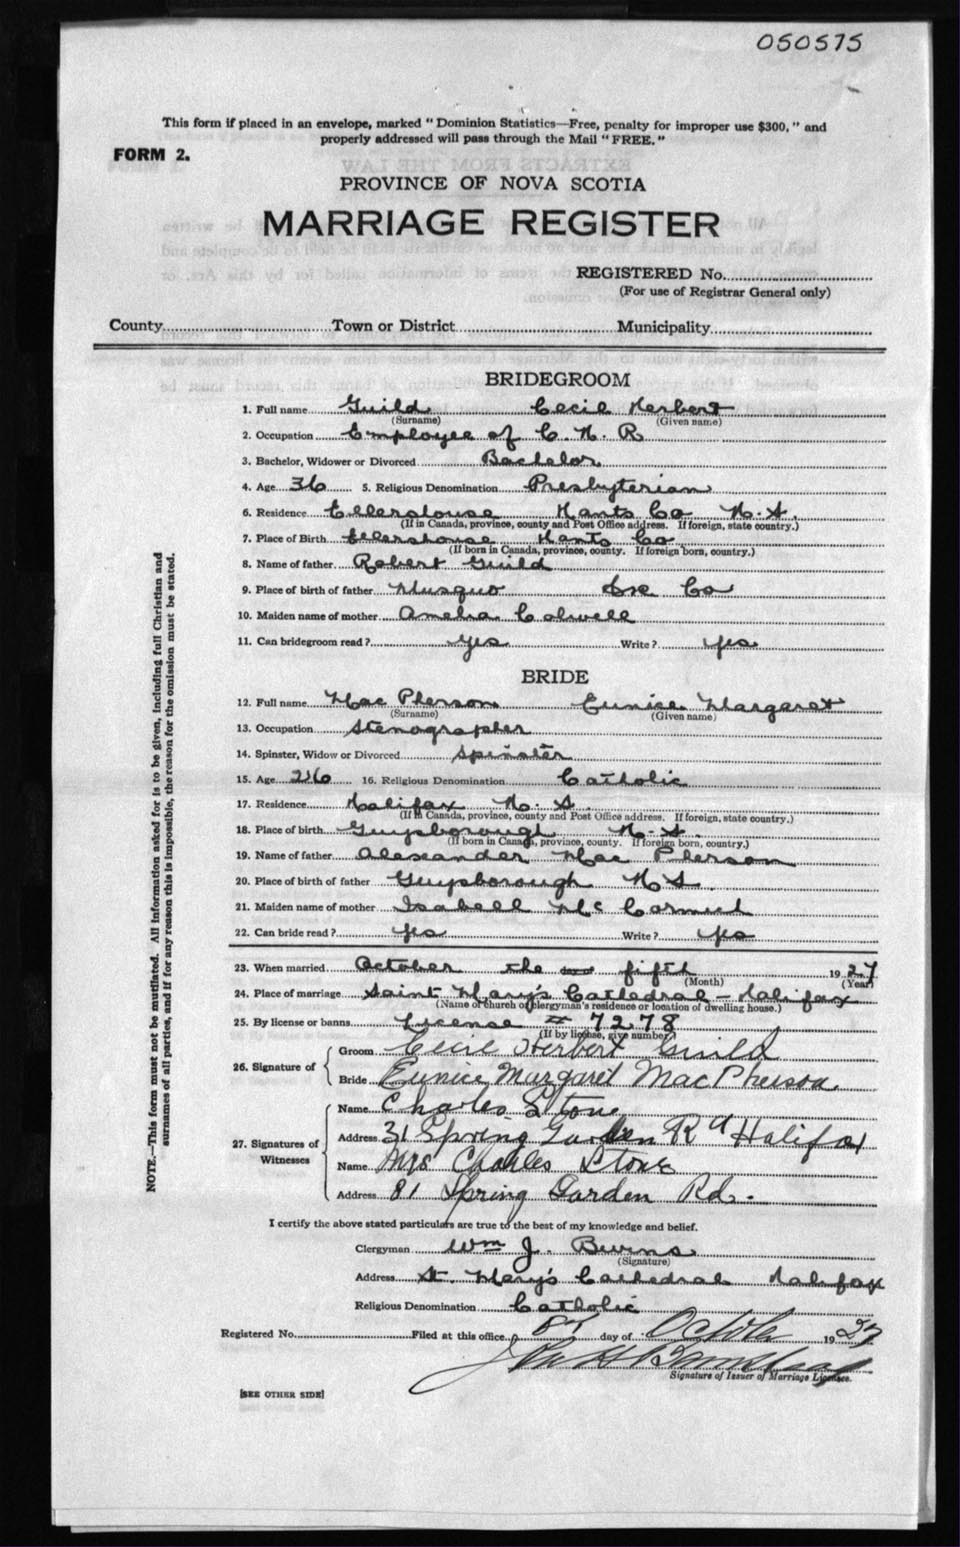 050575
This form if placed in an envelope, marked "Dominion Statistics—Free, penalty for improper use $300," and
properly addressed will pass through the Mail "FREE."
FORM 2.
PROVINCE OF NOVA SCOTIA
MARRIAGE REGISTER
REGISTERED No.
(For use of Registrar General only)
County Town or District Municipality
BRIDEGROOM
1. Full name Guild Cecil Herbert
(Surname) (Given name)
2. Occupation Employee of C. N. R
3. Bachelor, Widower or Divorced Bachelor
4. Age 36 5. Religious Denomination Presbyterian
6. Residence Ellershouse Hants Co N.S.
(If in Canada, province, county and Post Office address. If foreign, state country.)
7. Place of Birth Ellershouse Hants Co
(If born in Canada, province, county. If foreign born, country.)
8. Name of father Robert Guild
9. Place of birth of father Musquo Co
10. Maiden name of mother Amelia Colwell
11. Can bridegroom read? Yes Write? Yes
BRIDE
12. Full name Mac Pherson Eunice Margaret
(Surname) (Given name)
13. Occupation Stenographer
14. Spinster, Widow or Divorced Spinster
15. Age 26 16. Religious Denomination Catholic
17. Residence Halifax N. S.
(If in Canada, province, county and Post Office address. If foreign, state country.)
18. Place of birth Guysborough N. S.
(If born in Canada, province, county. If foreign born, country.)
19. Name of father Alexander Mac Pherson
20. Place of birth of father Guysborough N S.
21. Maiden name of mother Isabell Mc Cormick
22. Can bride read? Yes Write? Yes
23. When married October the fifth 1927
(Month) (Year)
24. Place of marriage Saint Mary's Cathedral - Halifax
(Name of church or clergyman's residence or location of dwelling house.)
25. By license or banns License # 7278
(If by license, give number)
26. Signature of
Groom Cecil Herbert Guild
Bride Eunice Margaret MacPherson
27. Signatures of Witnesses
Name Charles Stone
Address 31 Spring Garden Rd Halifax
Name Mrs Charles Stone
Address 81 Spring Garden Rd.
I certify the above stated particulars are true to the best of my knowledge and belief.
Clergyman Wm J. Burns
(Signature)
Address St. Mary's Cathedral Halifax
Religious Denomination Catholic
Registered No. Filed at this office, 8th day of October 1927
Signature of Issuer of Marriage Licenses.
[SEE OTHER SIDE]
NOTE.—This form must not be mutilated. All information asked for is to be given, including full Christian and
surnames of all parties, and if for any reason this is impossible, the reason for the omission must be stated.